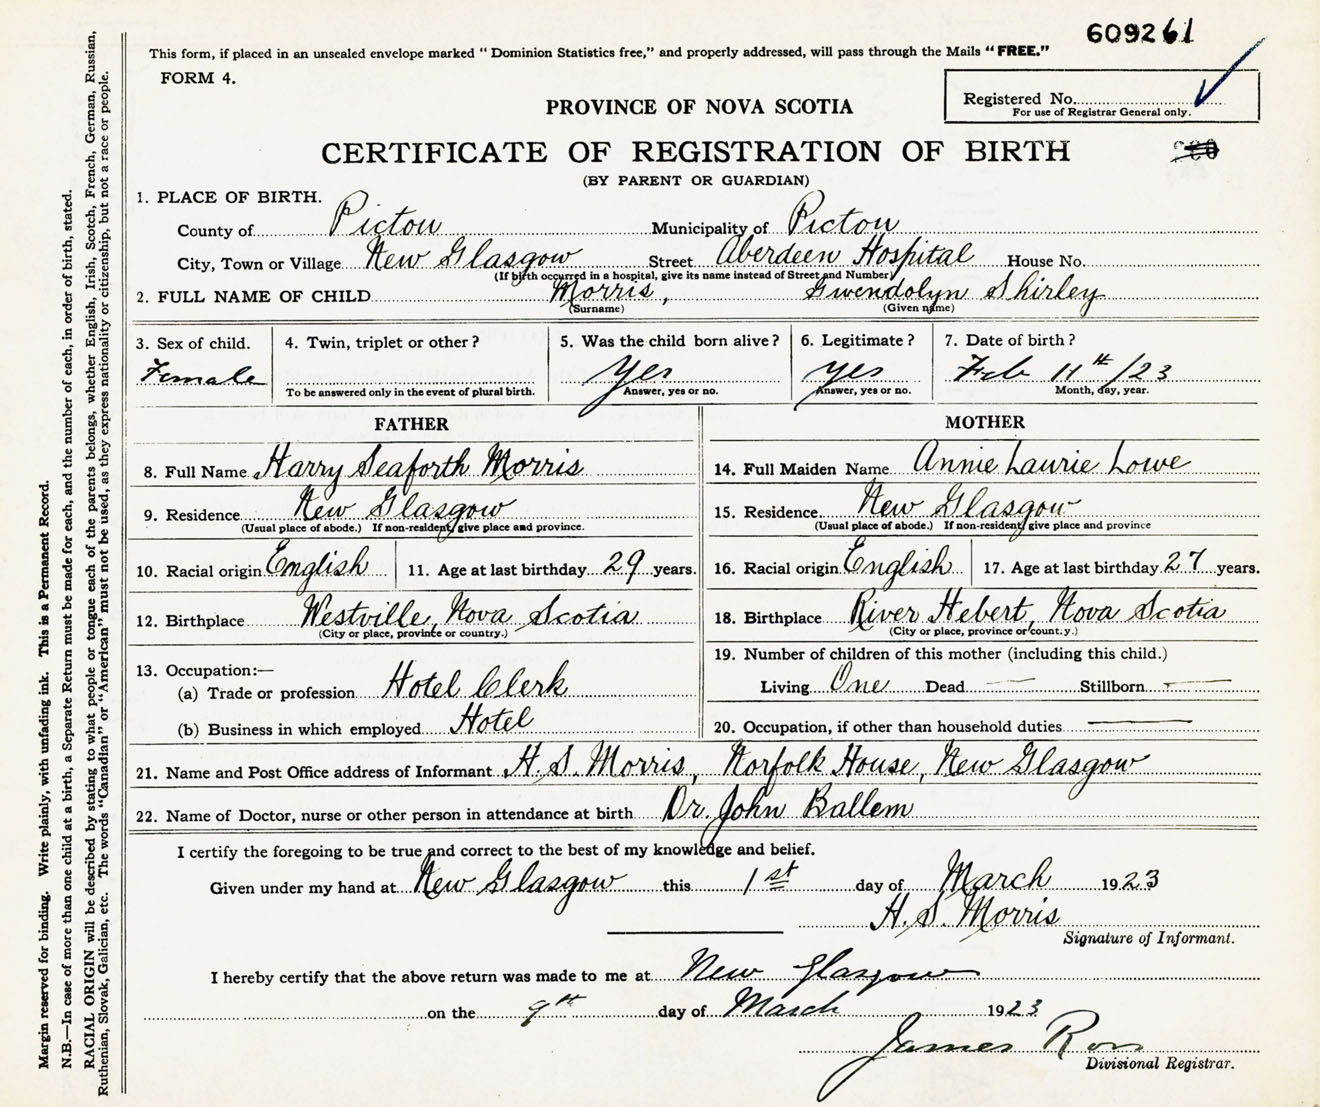 609261
This form, if placed in an unsealed envelope marked "Dominion Statistics free," and properly addressed, will pass through the Mails "FREE."
FORM 4.
Registered No.
For use of Registrar General only.
PROVINCE OF NOVA SCOTIA
CERTIFICATE OF REGISTRATION OF BIRTH
(BY PARENT OR GUARDIAN)
1. PLACE OF BIRTH.
County of Pictou Municipality of Pictou
City, Town or Village New Glasgow Street Aberdeen Hospital House No.
(If birth occurred in a hospital, give its name instead of Street and Number)
2. FULL NAME OF CHILD Morris, Gwendolyn Shirley
(Surname) (Given name)
3. Sex of child. 4. Twin, triplet or other? 5. Was the child born alive? 6. Legitimate? 7. Date of birth?
Female Yes Yes Feb 11th/23
To be answered only in the event of plural birth. Answer, yes or no. Answer, yes or no. Month, day, year.
FATHER
8. Full Name Harry Seaforth Morris
9. Residence New Glasgow
(Usual place of abode.) If non-resident, give place and province.
10. Racial origin English 11. Age at last birthday 29 years.
12. Birthplace Westville, Nova Scotia
(City or place, province or country.)
13. Occupation:—
(a) Trade or profession Hotel Clerk
(b) Business in which employed Hotel
MOTHER
14. Full Maiden Name Annie Laurie Lowe
15. Residence New Glasgow
(Usual place of abode.) If non-resident, give place and province
16. Racial origin English 17. Age at last birthday 27 years.
18. Birthplace River Hebert, Nova Scotia
(City or place, province or country.)
19. Number of children of this mother (including this child.)
Living One Dead — Stillborn —
20. Occupation, if other than household duties —
21. Name and Post Office address of Informant H. S. Morris, Norfolk House, New Glasgow
22. Name of Doctor, nurse or other person in attendance at birth Dr. John Ballem
I certify the foregoing to be true and correct to the best of my knowledge and belief.
Given under my hand at New Glasgow this 1st day of March 1923
H. S. Morris
Signature of Informant.
I hereby certify that the above return was made to me at New Glasgow
on the 9th day of March 1923
James Ross
Divisional Registrar.
Margin reserved for binding. Write plainly, with unfading ink. This is a Permanent Record.
N.B.—In case of more than one child at a birth, a Separate Return must be made for each, and the number of each, in order of birth, stated.
RACIAL ORIGIN will be described by stating to what people or tongue each of the parents belongs, whether English, Irish, Scotch, French, German, Russian,
Ruthenian, Slovak, Galician, etc. The words "Canadian" or "American" must not be used, as they express nationality or citizenship, but not a race or people.